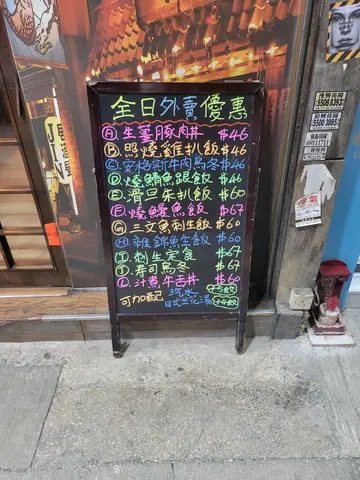 全日外賣優惠
Ⓐ.生薑豚肉丼 $46
Ⓑ.照燒雞扒飯 $46
Ⓒ.安格斯牛肉烏冬 $46
Ⓓ.燒鯖魚跟飯 $46
Ⓔ.滑旦朱扒飯 $60
Ⓕ.燒鰻魚飯 $67
Ⓖ.三文魚刺生飯 $60
Ⓗ.雜錦魚生飯 $60
Ⓘ.刺生定食 $67
Ⓙ.寿司烏冬 $67
Ⓛ.汁煮牛舌丼 $60
可加配 汽水